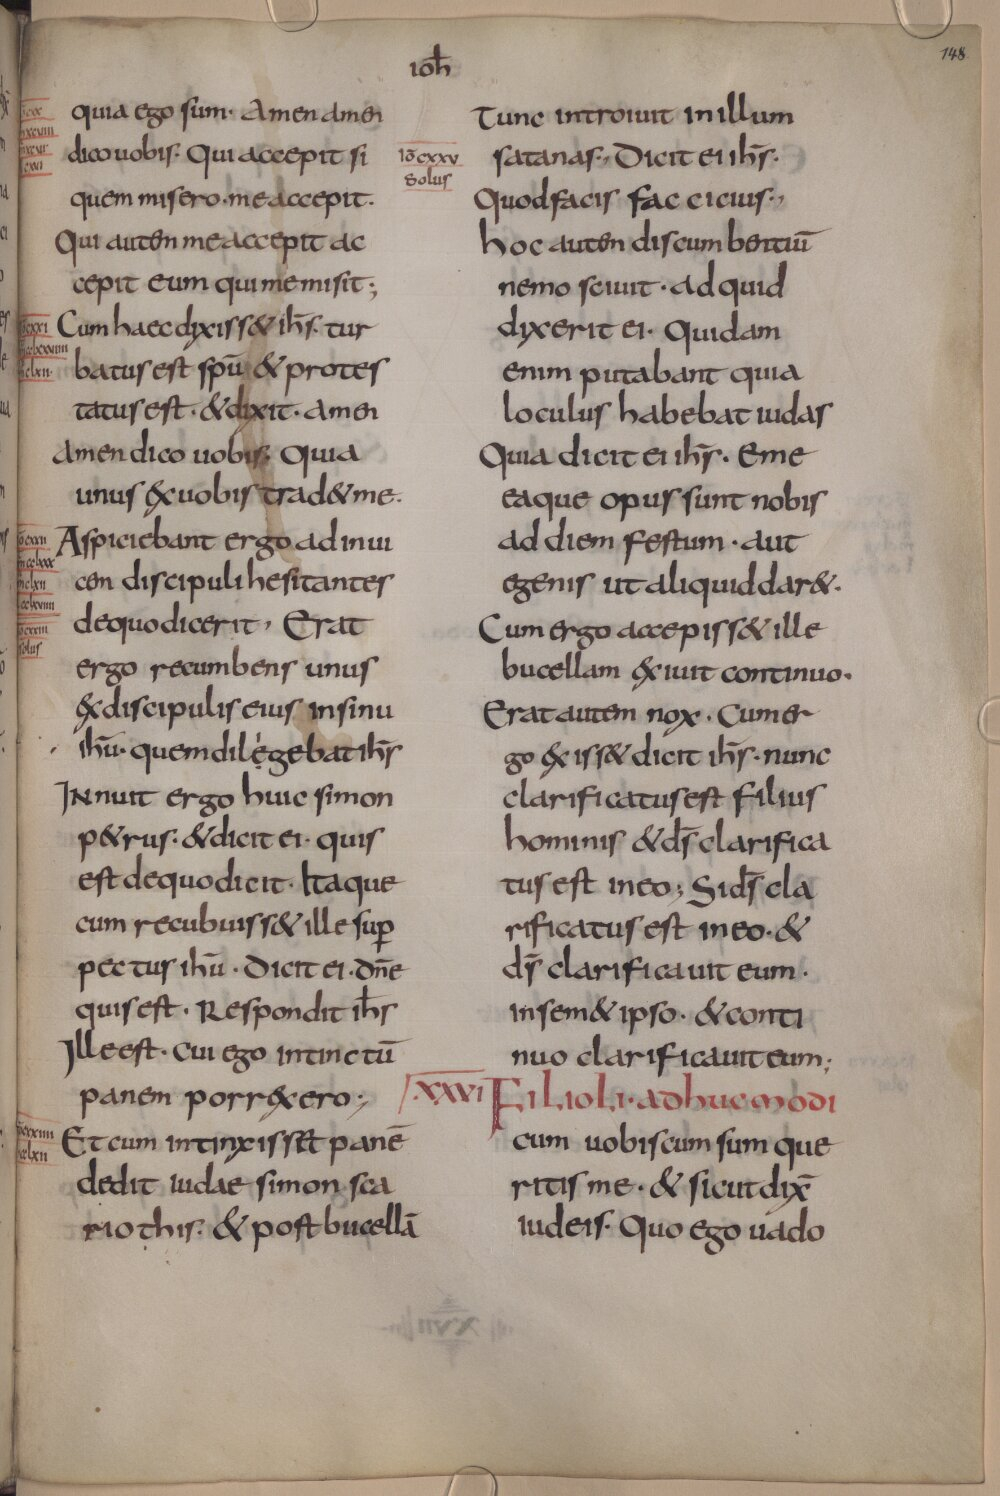 148
ioh̄
quia ego sum. Amen amen
dico uobis. Qui accepit si
quem misero. me accepit.
Qui auten me accepit ac
cepit eum qui me misit;
Cum haec dixiss& ih̄s. tur
batus est sp̄u & protes
tatus est. & dixit. amen
amen dico uobis. Quia
unus ex uobis trad& me.
Aspiciebant ergo ad inui
cen discipuli hesitantes
de quo dicerit, Erat
ergo recumbens unus
ex discipulis eius in sinu
ih̄u. quem dilegebat ih̄s
Innuit ergo huic simon
p&rus. & dicit ei. quis
est de quo dicit. Itaque
cum recubuiss& ille sup̄
pectus ih̄u. Dicit ei. dn̄e
quis est. Respondit ih̄s
Ille est. cui ego intinctū
panem porrexero;
Et cum intinxisset panē
dedit iudae simon sca
riothis. & post bucellā
Tunc introiuit in illum
iō cxxv
solus
satanas., Dicit ei ih̄s.
Quod facis fac cicius.,
hoc auten discumbentiū
nemo sciuit. ad quid
dixerit ei. Quidam
enim putabant quia
loculus habebat iudas
Quia dicit ei ih̄s. Eme
ea que opus sunt nobis
ad diem festum. aut
egenis ut aliquid dar&.
Cum ergo accepiss& ille
bucellam exiuit continuo.
Erat autem nox. Cum er
go exiss& dicit ih̄s. nunc
clarificatus est filius
hominis & d̄s clarifica
tus est in eo; Si d̄s cla
rificatus est in eo. &
d̄s clarificauit eum.
in sem& ipso. & conti
nuo clarificauit eum;
.xxvi Filioli. adhuc modi
cum uobiscum sum que
ritis me. & sicut dix̄
iudeis. Quo ego uado